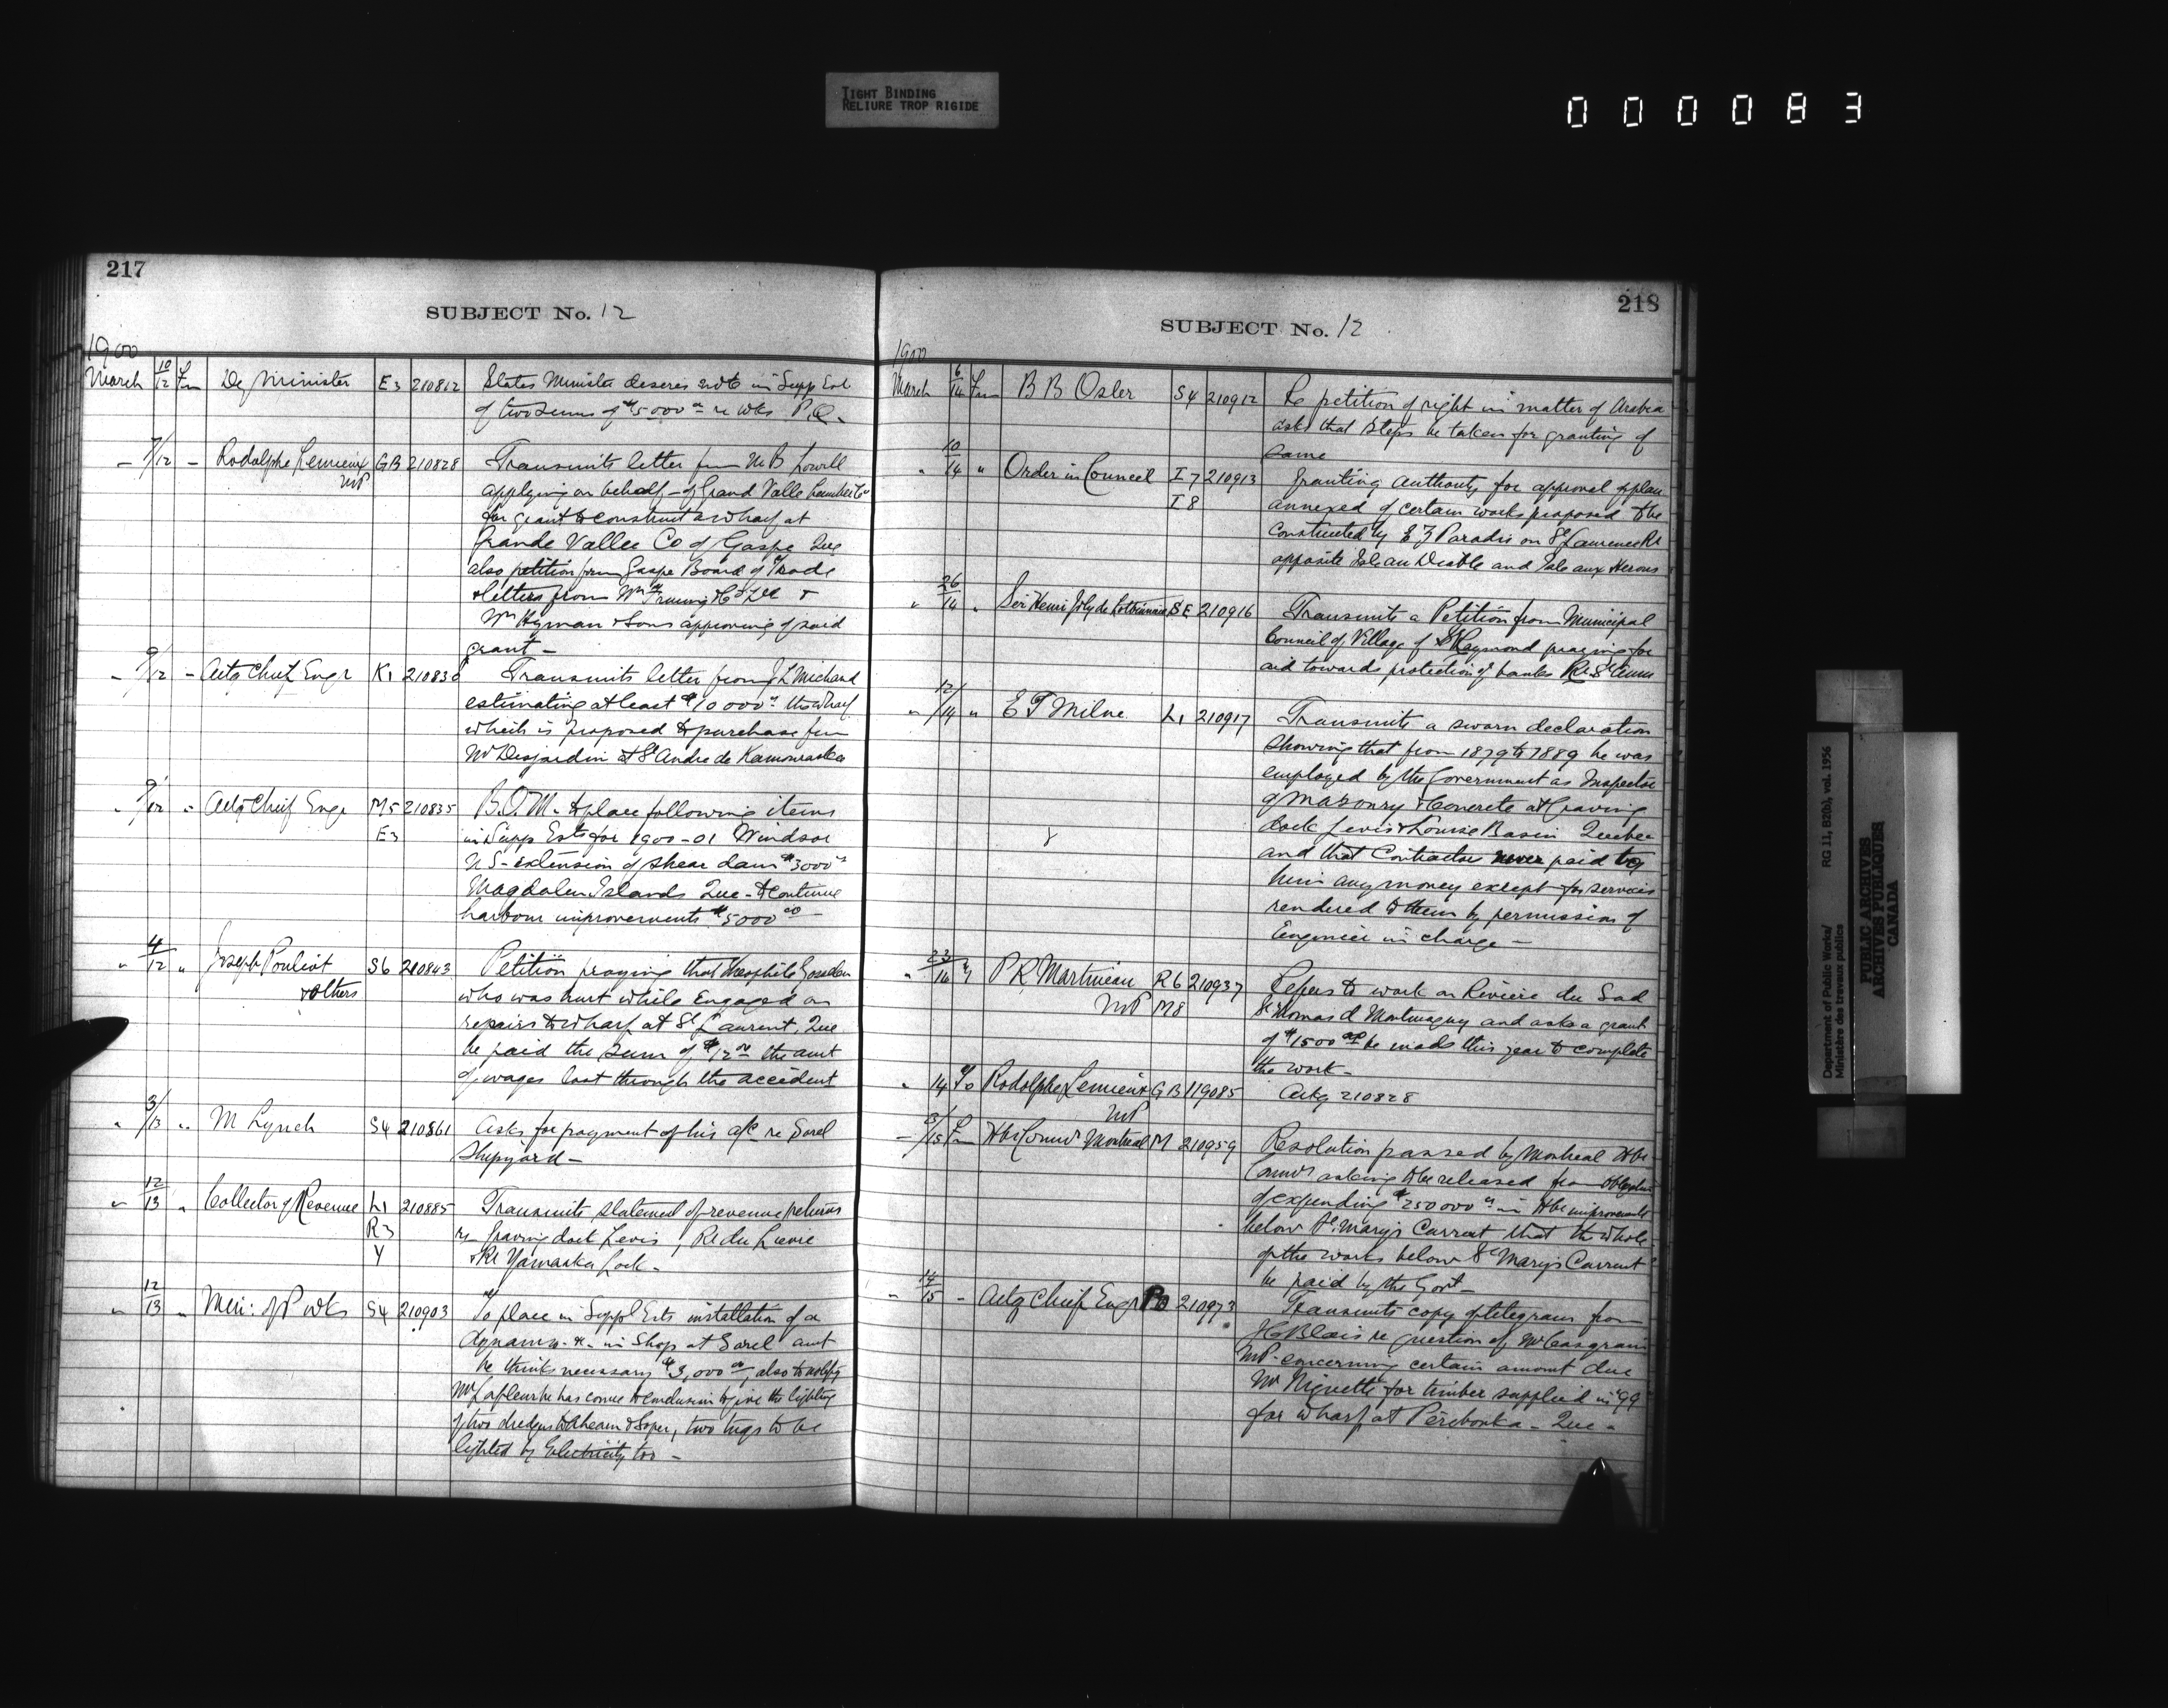 TIGHT BINDING
RELIURE TROP RIGIDE
000083
217
SUBJECT No. 12
1900
March 10/12 Fm Dy Minister E3 210812 States Minister desires vote in Supp Est
of two sums of $5000 00 re wks P.Q.
" 7/12 " Rodolphe Lemieux GB 210828 Transmits letter from M B Lovell
MP applying on behalf of Grand Valle Lumber Co
for grant to construct a wharf at
Grande Vallee Co of Gaspe Que
also petition from Gaspe Board of Trade
& letters from Wm Fruing & Co Ltd &
Wm Hyman & Sons approving of said
grant -
" 9/12 " Actg Chief Engr K1 210830 Transmits letter from J L Michaud
estimating at least $10 000 00 the wharf
which is proposed to purchase fm
Mr Desjardin at St Andre de Kamouraska
" 9/12 " Actg Chief Engr M5 210835 B.O.M. to place following items
E3 in Supp Ests for 1900-01 Windsor
N S - extension of shear dam $3000 00
Magdalen Islands Que - to continue
harbour improvements $5000 00 -
" 4/12 " Joseph Pouliot S6 210843 Petition praying that Theophile
& others who was hurt while engaged on
repairs to wharf at St Laurent, Que
be paid the sum of $12 00 the amt
of wages lost through the accident
" 3/13 " M Lynch S4 210861 Asks for payment of his a/c re Sorel
Shipyard -
" 12/13 " Collector of Revenue L1 210885 Transmits statement of revenue returns
R3 re Graving dock Levis, R du Lievre
Y & Rr Yamaska Lock -
" 12/13 " Min: of P wks S4 210903 To place in Suppl Ests installation of a
dynamo &c in Shop at Sorel amt
he thinks necessary $3,000 00, also to notify
Mr Lafleur he has come to conclusion to give the lighting
of two dredges to Ahearn & Soper, two tugs to be
lighted by Electricity too -
218
SUBJECT No. 12
1900
March 6/14 Fm B B Osler S4 210912 Re petition of right in matter of Arabia
asks that steps be taken for granting of
same
" 10/14 " Order in Council I7 210913 Granting authority for approval of plan
I8 annexed of certain works proposed to be
constructed by E Z Paradis on St Lawrence Rr
opposite Isle au Diable and Isle aux Herons
" 26/14 " Sir Henri Joly de Lotbiniere SE 210916 Transmits a Petition from Municipal
Council of Village of St Raymond praying for
aid towards protection of banks Rr St Anne
" 12/14 " E T Milne L1 210917 Transmits a sworn declaration
showing that from 1879 to 1889 he was
employed by the Government as Inspector
of Masonry & Concrete at Graving
dock Levis & Louise Basin Quebec
and that Contractors never paid to
him any money except for services
rendered to them by permission of
Engineer in charge -
" 23/14 " P R Martineau R6 210937 Refers to work on Riviere du Sud
MP M8 St Thomas d Montmagny and asks a grant
of $1500 00 be made this year to complete
the work -
" 14 To Rodolphe Lemieux GB 119085 Ackg 210828
MP
" 3/15 Fm Hbr Commrs Montreal M 210959 Resolution passed by Montreal Hbr
Commrs asking to be released from obligation
of expending $250000 00 in Hbr improvements
below St. Mary's Current that the whole
of the works below St Mary's Current
be paid by the Govt -
" 14/15 " Actg Chief Engr 210973 Transmits copy of telegram from
H C Blais re question of Mr Casgrain
MP - concerning certain amount due
Mr Niquette for timber supplied in '99
for wharf at Péribonka - Que -
Department of Public Works/ RG 11, B2(b), vol. 1956
Ministère des travaux publics
PUBLIC ARCHIVES
ARCHIVES PUBLIQUES
CANADA